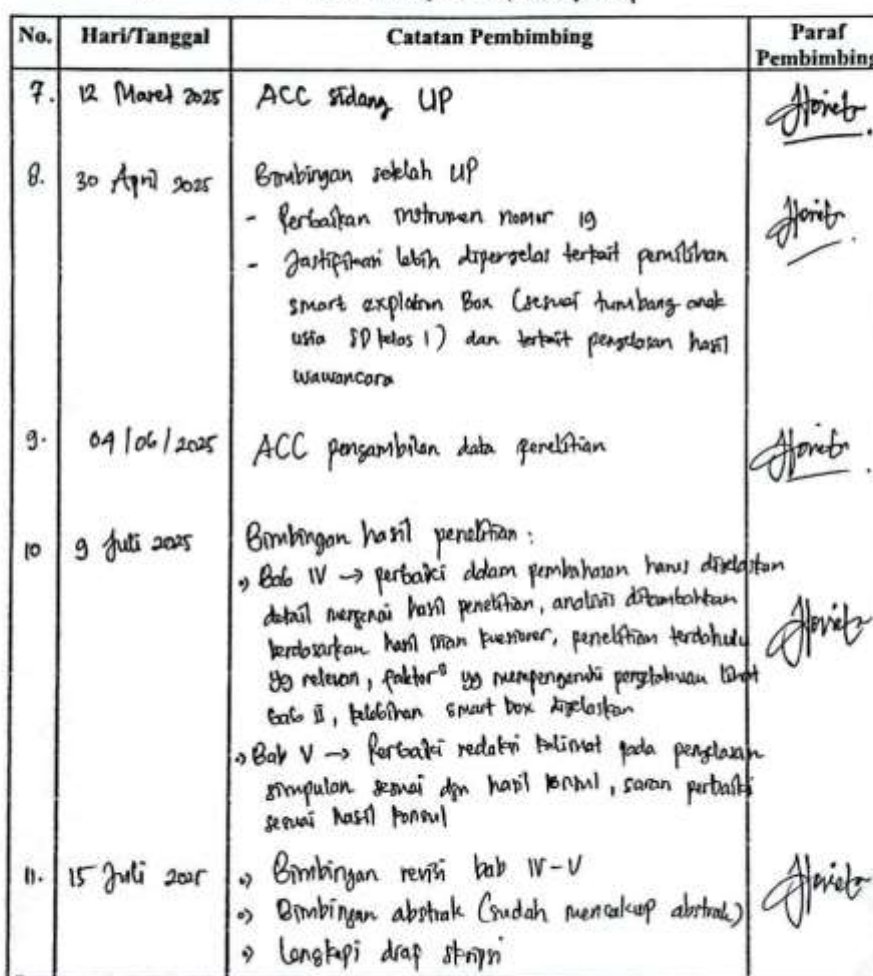 No. Hari/Tanggal Catatan Pembimbing Paraf Pembimbing
7. 12 Maret 2025 ACC sidang UP
8. 30 April 2025 Bimbingan setelah UP
- Perbaikan instrumen nomor 19
- Justifikasi lebih diperjelas terkait pemilihan
smart explotion Box (sesuai tumbang anak
usia SD kelas 1) dan terkait penjelasan hasil
wawancara
9. 04/06/2025 ACC pengambilan data penelitian
10 9 Juli 2025 Bimbingan hasil penelitian :
Bab IV → perbaiki dalam pembahasan harus dijelaskan
detail mengenai hasil penelitian, analisis ditambahkan
berdasarkan hasil isian kuesioner, penelitian terdahulu
yg relevan, faktor² yg mempengaruhi pengetahuan lihat
bab II, kelebihan smart box dijelaskan
Bab V → Perbaiki redaksi kalimat pada penjelasan
simpulan sesuai dgn hasil konsul, saran perbaiki
sesuai hasil konsul
11. 15 Juli 2025 Bimbingan revisi bab IV-V
Bimbingan abstrak (sudah mencakup abstrak)
Lengkapi draf skripsi